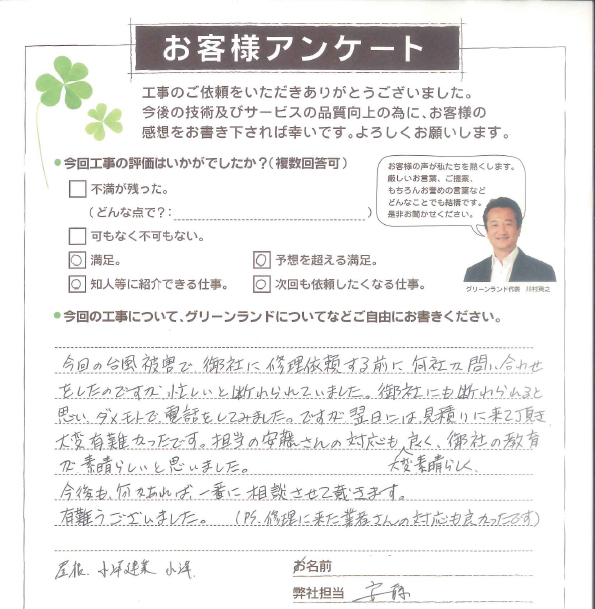 お客様アンケート
工事のご依頼をいただきありがとうございました。
今後の技術及びサービスの品質向上の為に、お客様の
感想をお書き下されば幸いです。よろしくお願いします。
●今回工事の評価はいかがでしたか？（複数回答可）
不満が残った。
（どんな点で？：　）
可もなく不可もない。
○ 満足。
○ 予想を超える満足。
○ 知人等に紹介できる仕事。
○ 次回も依頼したくなる仕事。
お客様の声が私たちを熱くします。
厳しいお言葉、ご提案、
もちろんお誉めの言葉など
どんなことでも結構です。
是非お聞かせください。
グリーンランド代表
●今回の工事について、グリーンランドについてなどご自由にお書きください。
今回の台風被害で、御社に修理依頼する前に何社か問い合わせ
をしたのですが、忙しいと断わられていました。御社にも断わられると
思い、ダメモトで、電話をしてみました。ですが翌日には、見積りに来て頂き、
大変有難かったです。担当の安藤さんの対応も、良く、御社の教育
が素晴らしいと思いました。
大変素晴らしく、
今後も、何かあれば、一番に相談させて戴きます。
有難うございました。（PS.修理に来た業者さんの対応も良かったです）
屋根.
お名前
弊社担当 安藤